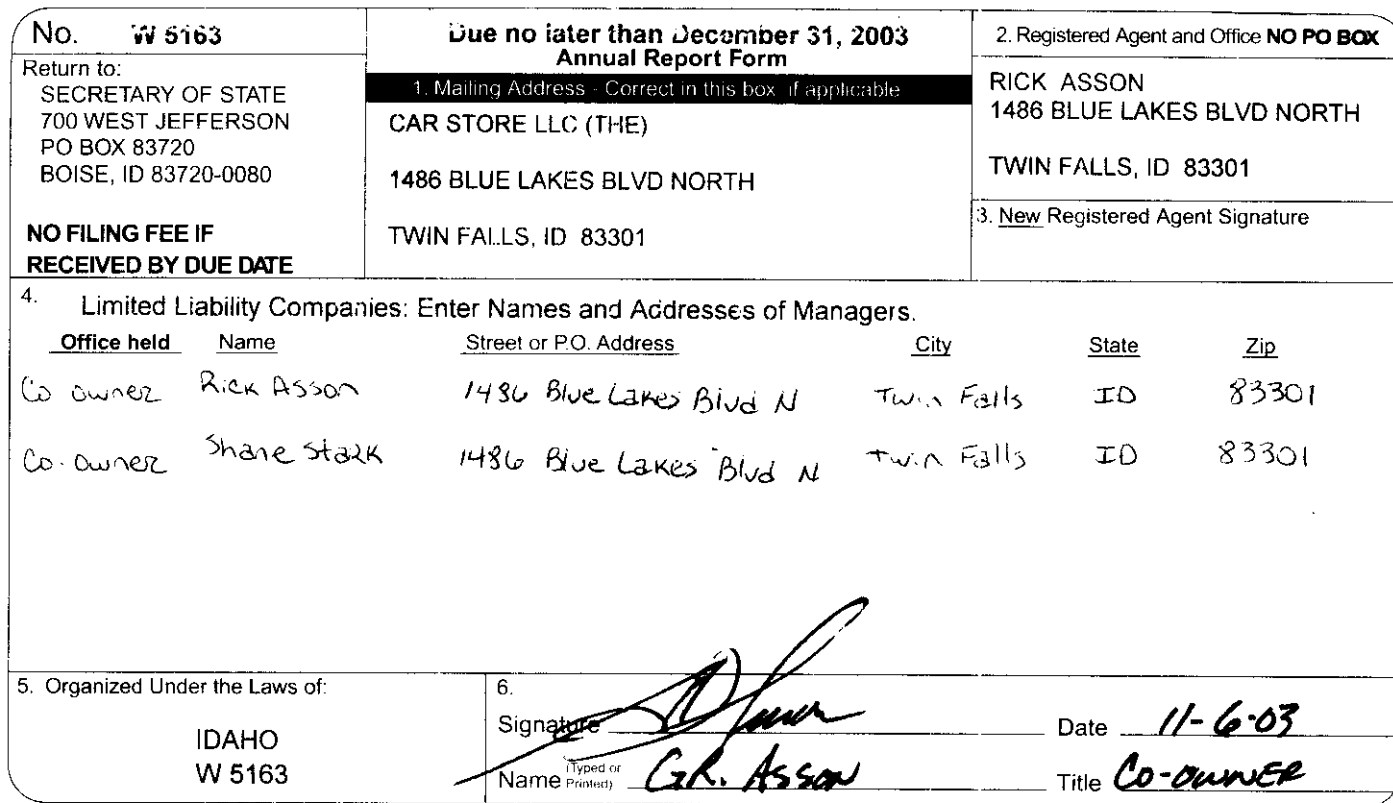 No. W 5163
Return to:
SECRETARY OF STATE
700 WEST JEFFERSON
PO BOX 83720
BOISE, ID 83720-0080
NO FILING FEE IF
RECEIVED BY DUE DATE
Due no later than December 31, 2003
Annual Report Form
1. Mailing Address - Correct in this box if applicable
CAR STORE LLC (THE)
1486 BLUE LAKES BLVD NORTH
TWIN FALLS, ID 83301
2. Registered Agent and Office NO PO BOX
RICK ASSON
1486 BLUE LAKES BLVD NORTH
TWIN FALLS, ID 83301
3. New Registered Agent Signature
4. Limited Liability Companies: Enter Names and Addresses of Managers.
Office held Name Street or P.O. Address City State Zip
Co owner Rick Asson 1486 Blue Lakes Blvd N Twin Falls ID 83301
Co-owner Shane Stark 1486 Blue Lakes Blvd N Twin Falls ID 83301
5. Organized Under the Laws of:
IDAHO
W 5163
6.
Signature
Date 11-6-03
Name (Typed or Printed) G.R. Asson
Title Co-owner